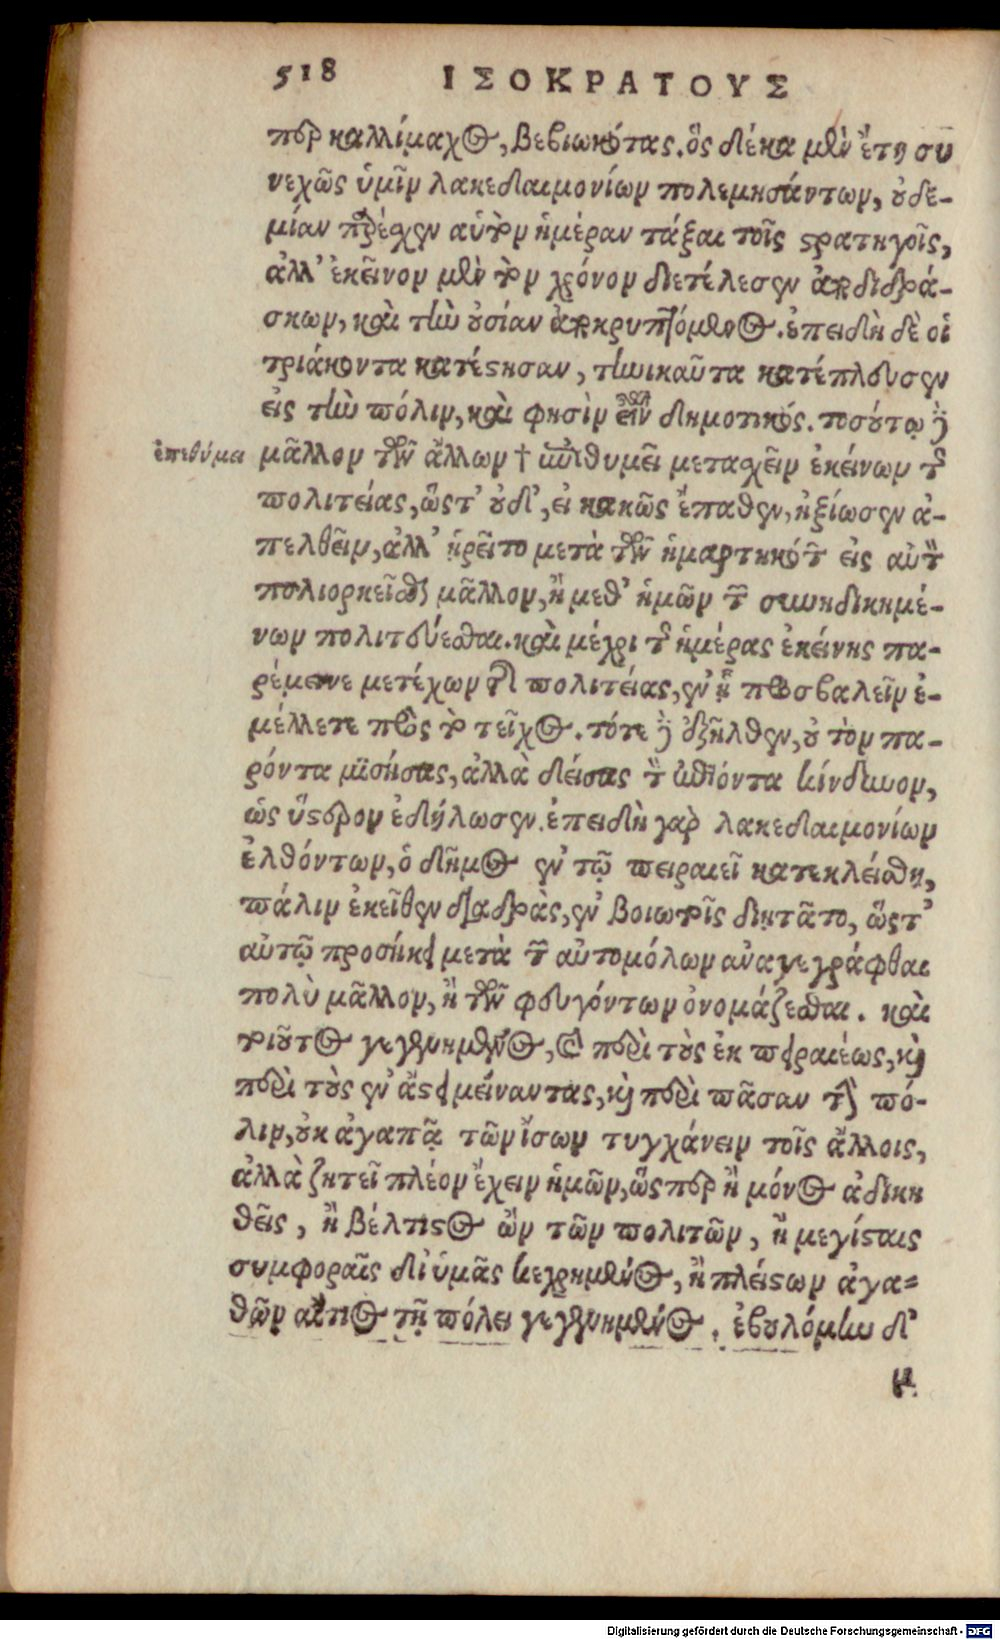 518 ΙΣΟΚΡΑΤΟΥΣ
περ καλλίμαχος, βεβιωκότας. ὃς δέκα μὲν ἔτη συ
νεχῶς ὑμῖν λακεδαιμονίων πολεμησάντων, οὐδε-
μίαν παρέσχεν αὑτὸν ἡμέραν τάξαι τοῖς στρατηγοῖς,
ἀλλ' ἐκεῖνον μὲν τὸν χρόνον διετέλεσεν ἀποδιδρά-
σκων, καὶ τὴν οὐσίαν ἀποκρυπτόμενος. ἐπειδὴ δὲ οἱ
τριάκοντα κατέστησαν, τηνικαῦτα κατέπλευσεν
εἰς τὴν πόλιν, καὶ φησὶν εἶναι δημοτικός. τοσούτῳ δὲ
ἐπεθύμει μᾶλλον τῶν ἄλλων † ἐπιθυμεῖ μετασχεῖν ἐκείνων τῆς
πολιτείας, ὥστ' οὐδ', εἰ κακῶς ἔπαθεν, ἠξίωσεν ἀ-
πελθεῖν, ἀλλ' ᾑρεῖτο μετὰ τῶν ἡμαρτηκότων εἰς αὐτὸν
πολιορκεῖσθαι μᾶλλον, ἢ μεθ' ἡμῶν τῶν συνηδικημέ-
νων πολιτεύεσθαι. καὶ μέχρι τῆς ἡμέρας ἐκείνης πα-
ρέμεινε μετέχων τῆς πολιτείας, ἐν ᾗ προσβαλεῖν ἐ-
μέλλετε πρὸς τὸ τεῖχος. τότε δὲ ἐξῆλθεν, οὐ τὸν πα-
ρόντα μισήσας, ἀλλὰ δείσας τὸν ἐπιόντα κίνδυνον,
ὡς ὕστερον ἐδήλωσεν. ἐπειδὴ γὰρ λακεδαιμονίων
ἐλθόντων, ὁ δῆμος ἐν τῷ πειραιεῖ κατεκλείσθη,
πάλιν ἐκεῖθεν διαδρὰς, ἐν βοιωτοῖς διῃτᾶτο, ὥστ'
αὐτῷ προσήκει μετὰ τῶν αὐτομόλων ἀναγεγράφθαι
πολὺ μᾶλλον, ἢ τῶν φευγόντων ὀνομάζεσθαι. καὶ
τοιοῦτος γεγενημένος, καὶ περὶ τοὺς ἐκ πειραιέως, καὶ
περὶ τοὺς ἐν ἄστει μείναντας, καὶ περὶ πᾶσαν τὴν πό-
λιν, οὐκ ἀγαπᾷ τῶν ἴσων τυγχάνειν τοῖς ἄλλοις,
ἀλλὰ ζητεῖ πλέον ἔχειν ἡμῶν, ὥσπερ ἢ μόνος ἀδικη
θεῖς, ἢ βέλτιστος ὢν τῶν πολιτῶν, ἢ μεγίσταις
συμφοραῖς δι' ὑμᾶς κεχρημένος, ἢ πλείστων ἀγα-
θῶν αἴτιος τῇ πόλει γεγενημένος. ἐβουλόμην δ'
Digitalisierung gefördert durch die Deutsche Forschungsgemeinschaft - DFG